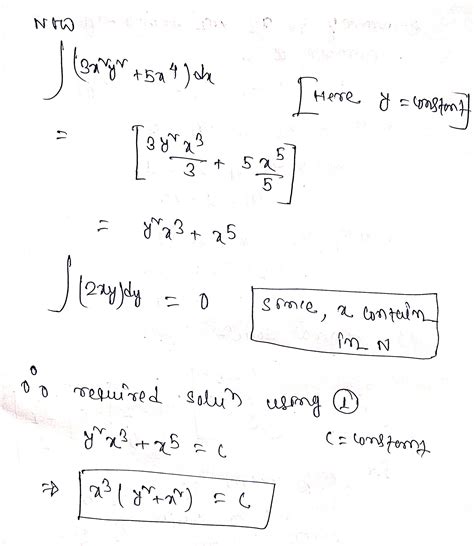 Now
∫(3x²y² + 5x⁴) dx
[Here y = constant]
= [3y²x³/3 + 5x⁵/5]
= y²x³ + x⁵
∫(2xy)dy = 0
Since, x contain
in N
∴ required solun using ①
y²x³ + x⁵ = C
C = constant
⇒ x³(y² + x²) = C